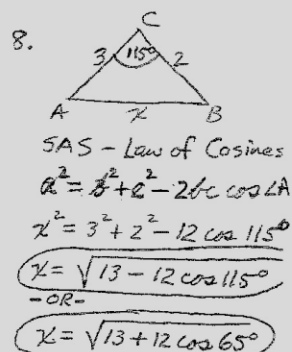 8.
C
3 115° 2
A x B
SAS - Law of Cosines
a² = b² + c² - 2bc cos∠A
x² = 3² + 2² - 12 cos 115°
x = √13 - 12 cos 115°
- OR -
x = √13 + 12 cos 65°